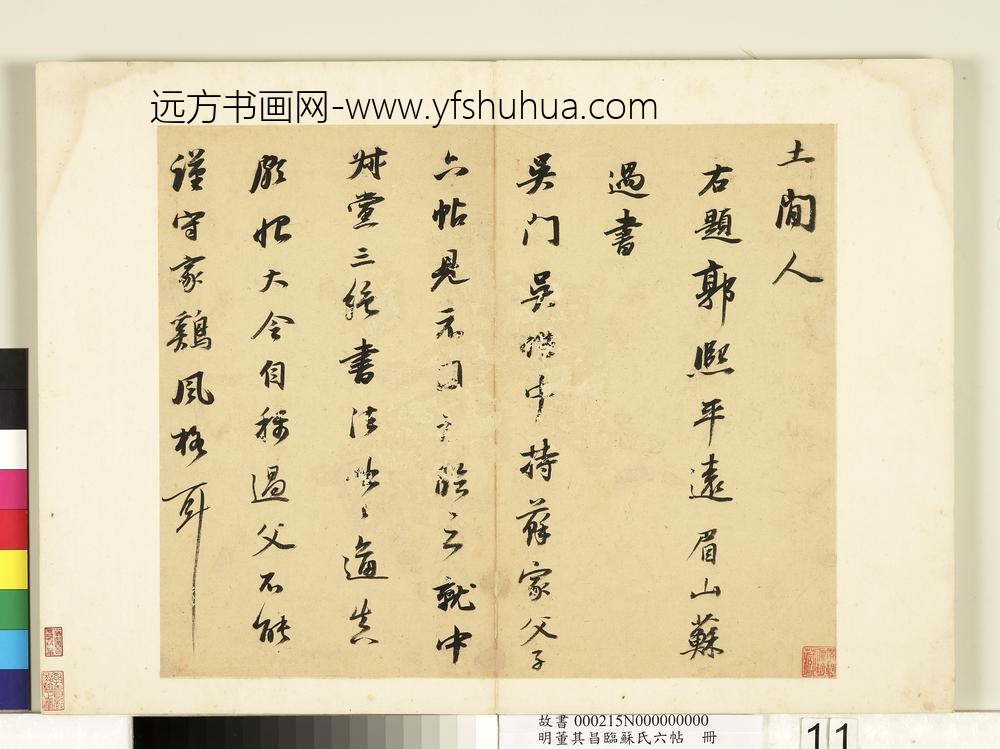 远方书画网-www.yfshuhua.com
土閒人
右題郭熙平遠眉山蘇
過書
吳門吳中持蘇家父子
六帖見示因臨之就中
叔黨三絕書法逼真
大令自稱過父不能
謹守家雞風格耳
故書 000215N000000000
明董其昌臨蘇氏六帖 冊
11